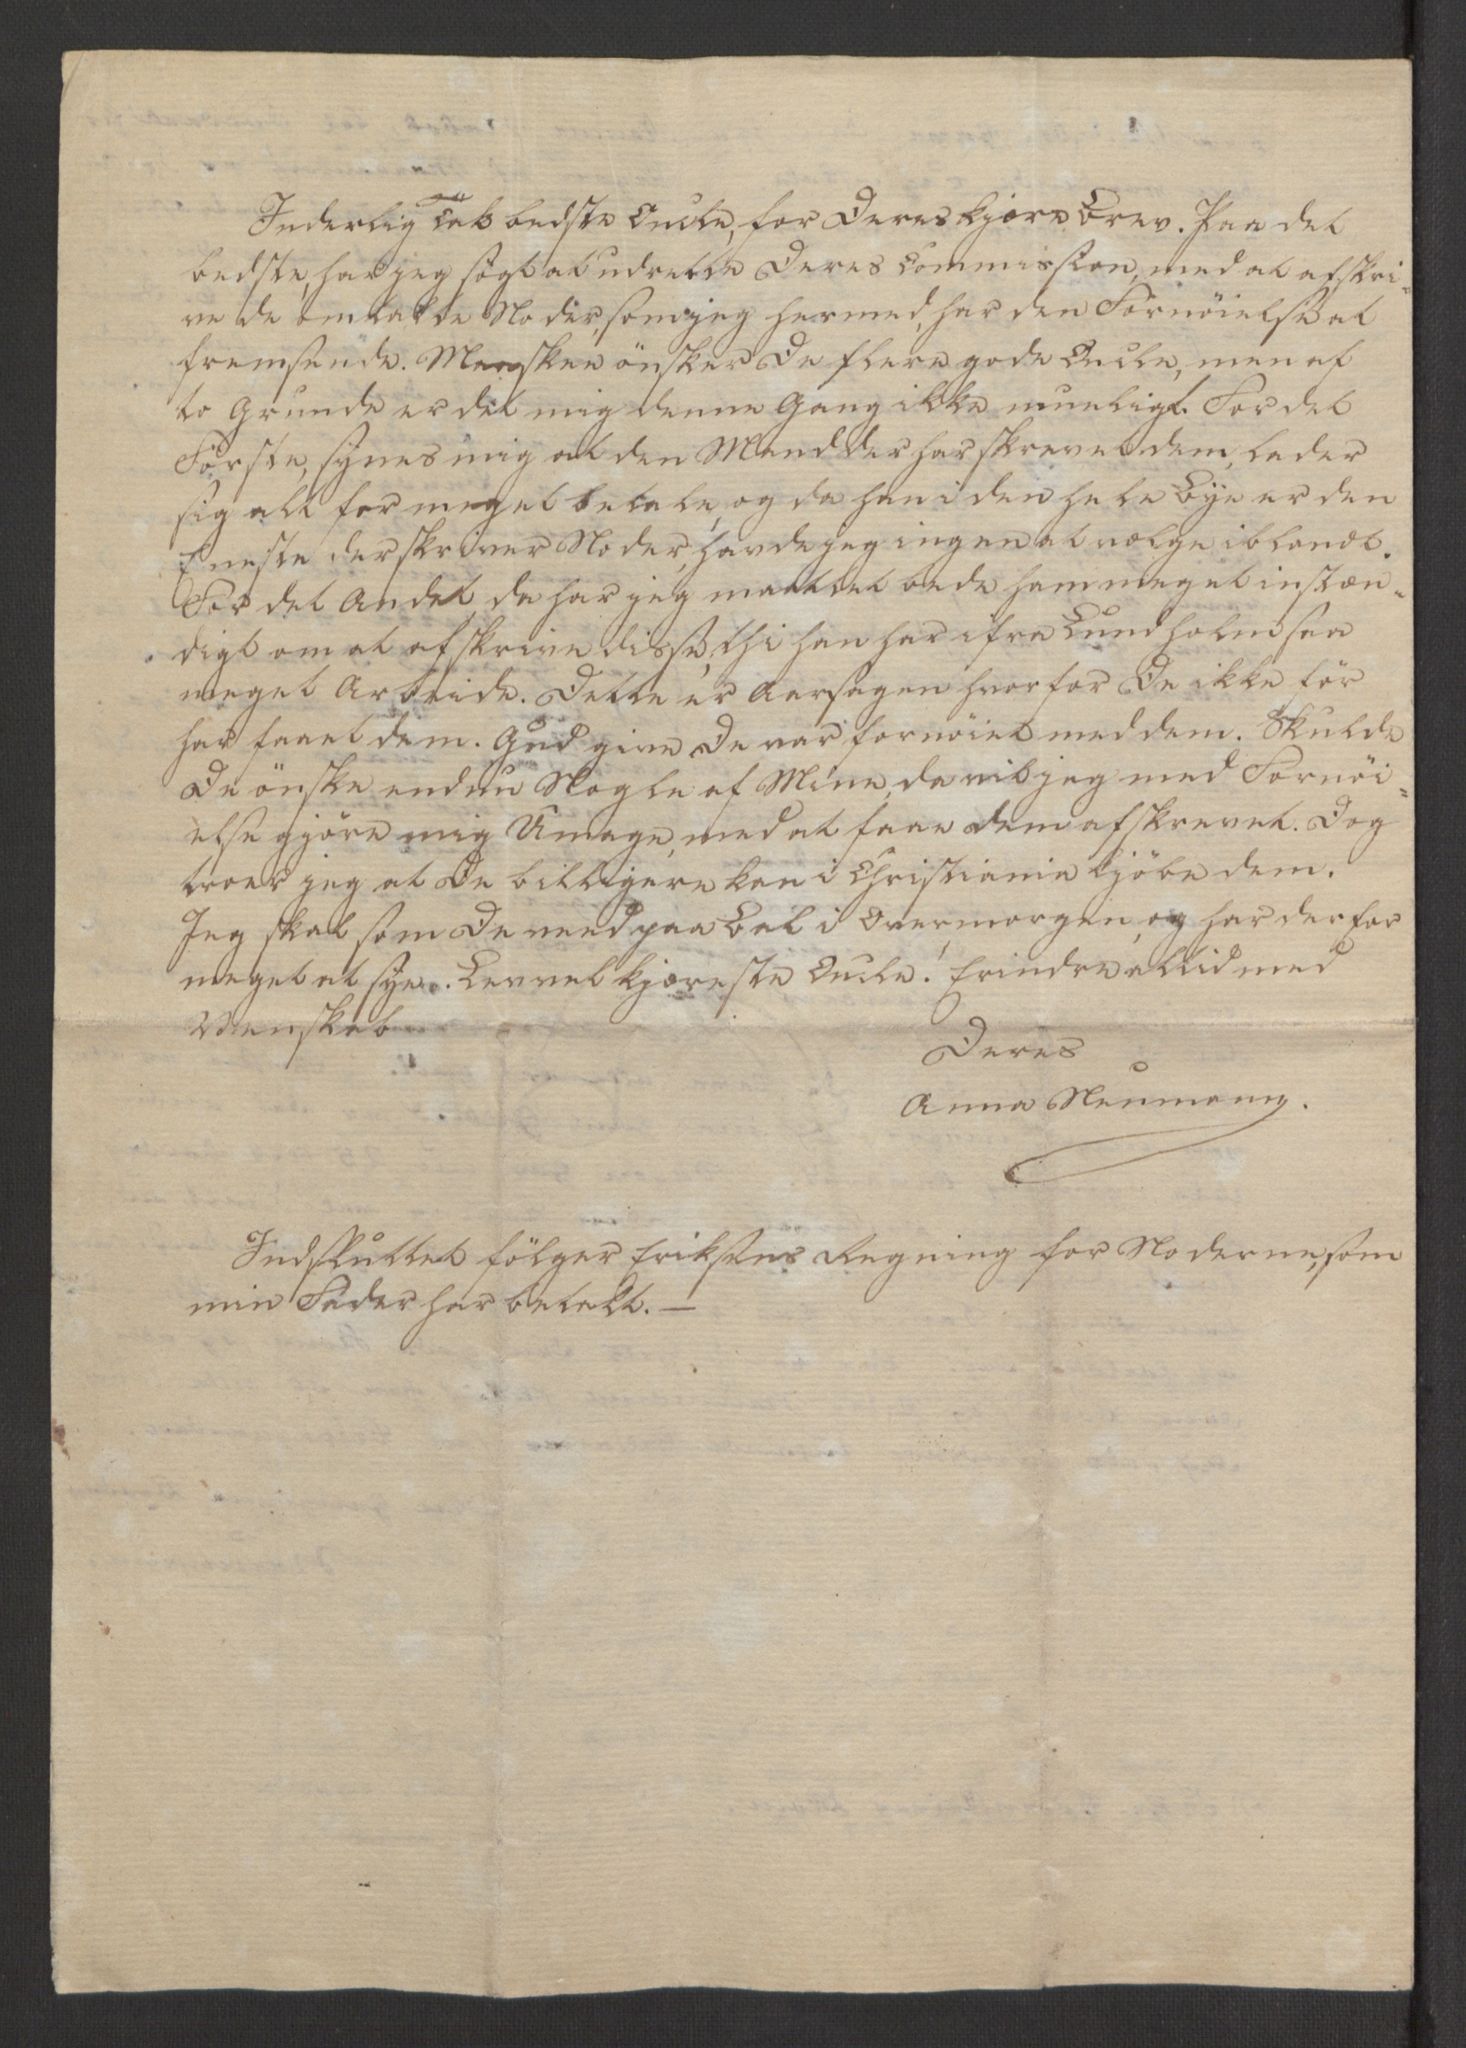 Inderlig Tak bedste Oncle, for Deres kjære Brev. Paa det
bedste, har jeg søgt at udrette Deres Commission, med at afskri-
ve de omtalte Noder, som jeg hermed, har den Fornöielse at
fremsende. Maaskee önsker De flere gode Oncle, men af
to Grunde er det mig denne Gang ikke mueligt. For det
Förste, synes mig at den Mand der har skrevet dem, lader
sig alt for meget betale, og da han i den hele Bye er den
Eneste der skriver Noder, havde jeg ingen at vælge iblandt.
For det Andet da har jeg maattet bede ham meget instæn-
digt om at afskrive disse, thi han har ifra Lundholm saa
meget Arbeide. Dette er Aarsagen hvorfor De ikke för
har faaet dem. Gud give De var fornöiet med dem. Skulde
De önske endnu Nogle af Mine, da vil jeg med Fornöi-
else gjöre mig Umage, med at faae dem afskrevet. Dog
troer jeg at De billigere kan i Christiania kjöbe dem.
Jeg skal som De veed paa Bal i Overmorgen, og har derfor
meget at sye. Levvel kjæreste Oncle! Erindre altid med
Venskab
Deres
Anna Neumann.
Indsluttet fölger Eriksens Regning for Noderne, som
min Fader har betalt. —